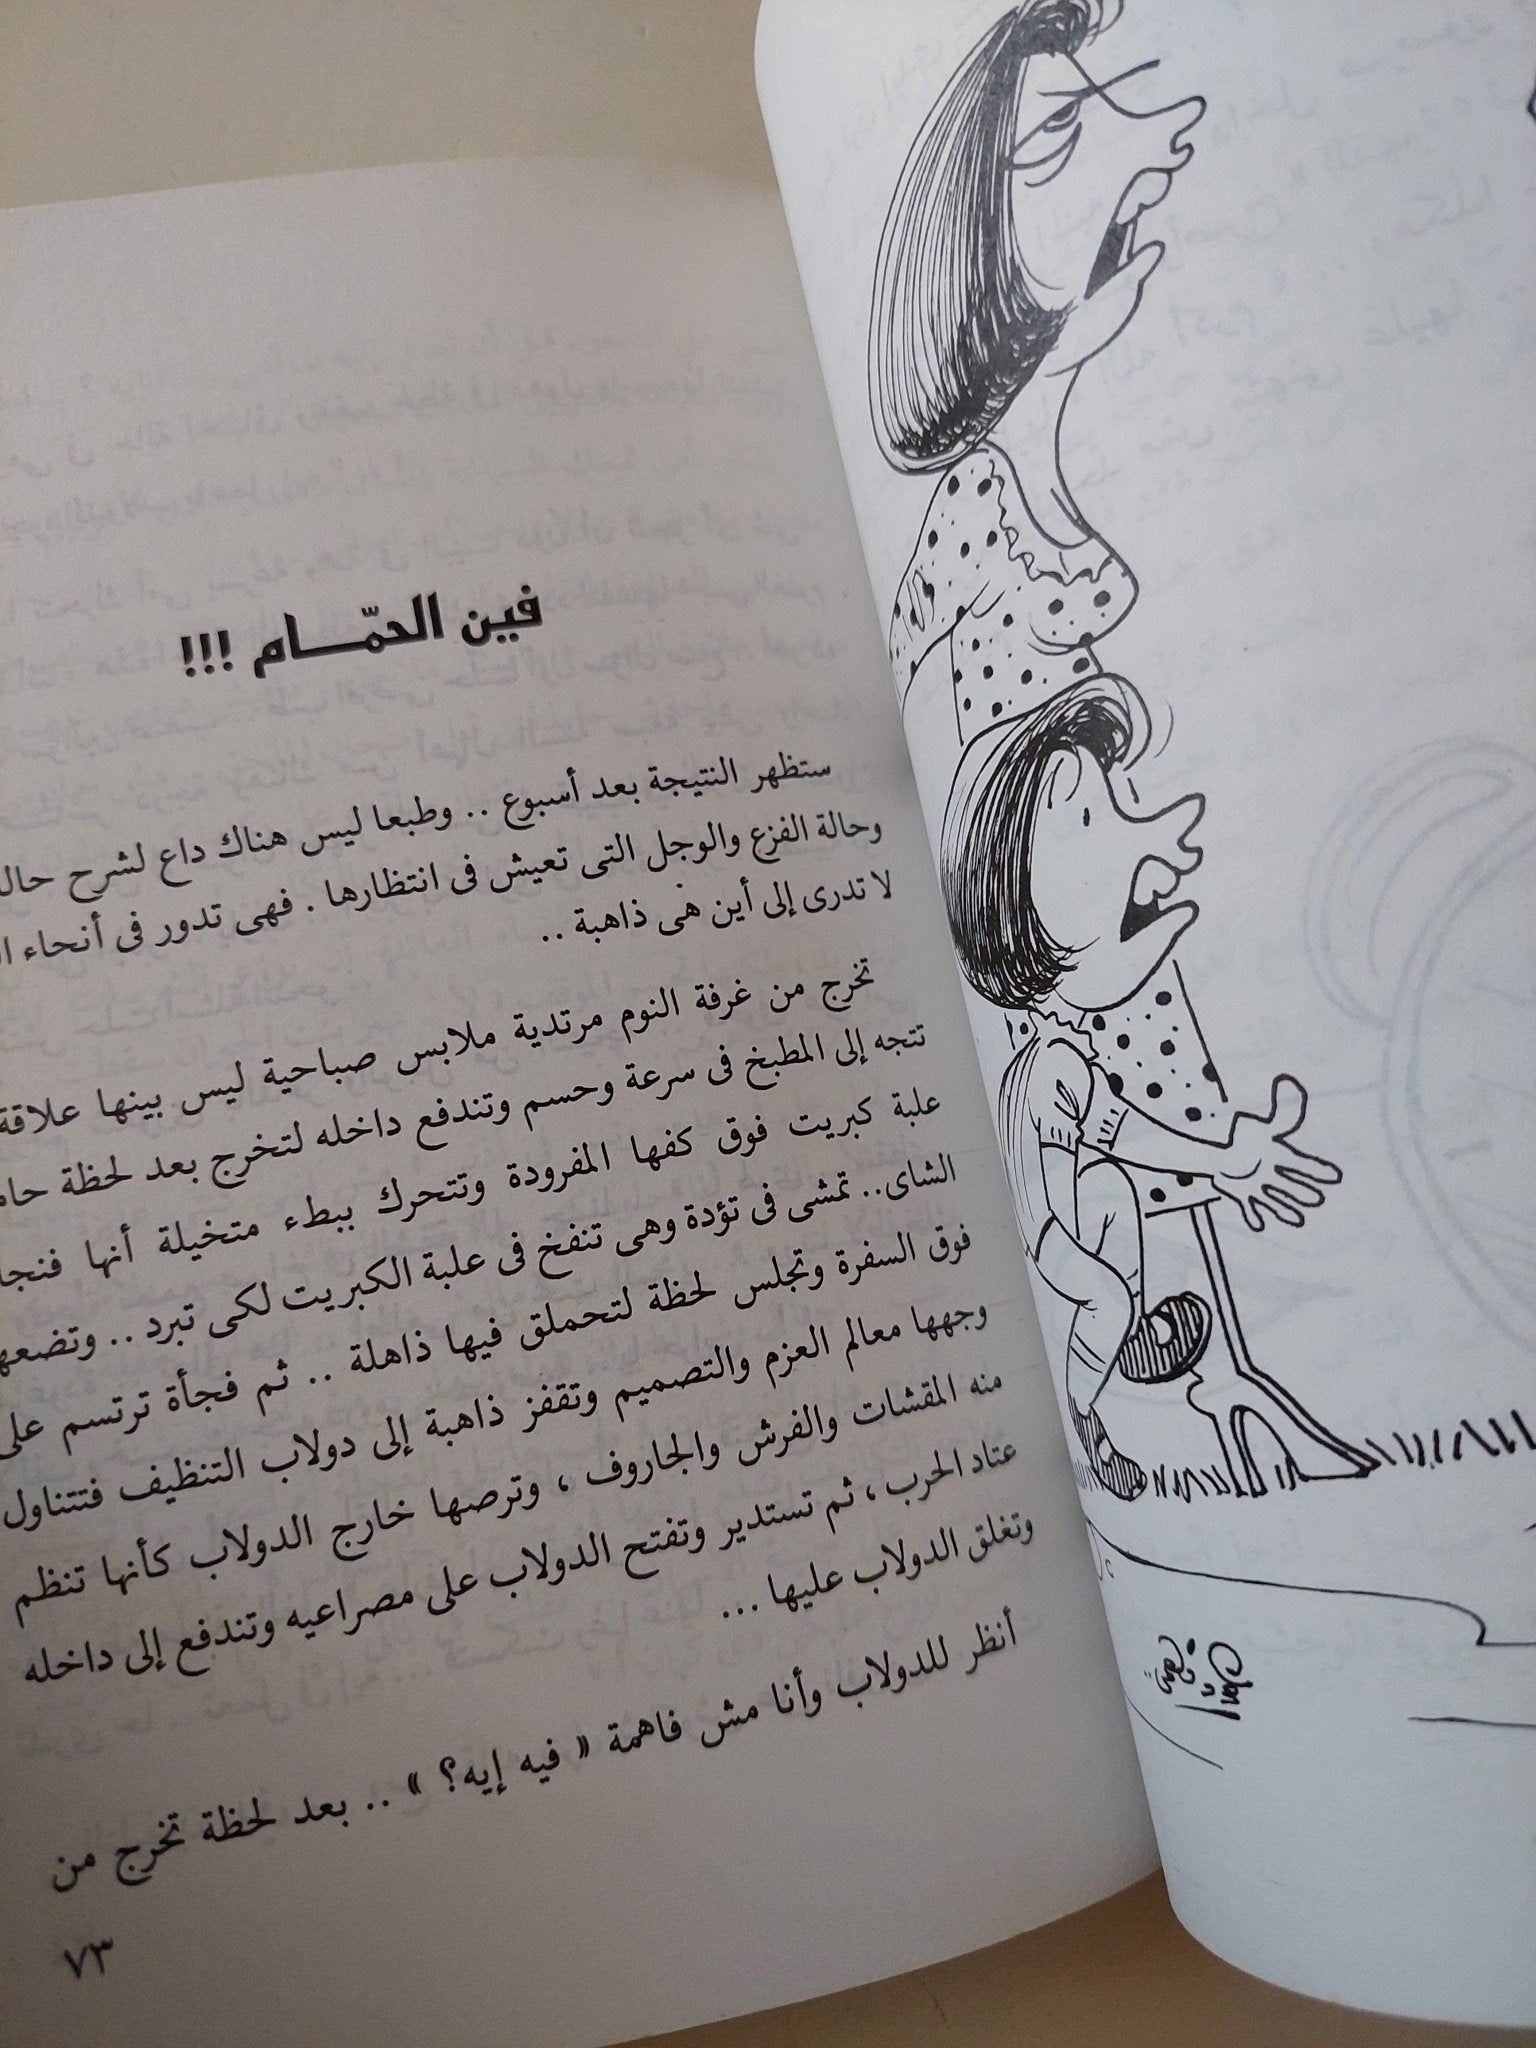 فين الحمّـــام !!!
ستظهر النتيجة بعد أسبوع .. وطبعا ليس هناك داع لشرح
وحالة الفزع والوجل التى تعيش فى انتظارها . فهى تدور فى أنحاء
لا تدرى إلى أين هى ذاهبة ..
تخرج من غرفة النوم مرتدية ملابس صباحية ليس بينها علاقة
تتجه إلى المطبخ فى سرعة وحسم وتندفع داخله لتخرج بعد لحظة
علبة كبريت فوق كفها المفرودة وتتحرك ببطء متخيلة أنها
الشاى.. تمشى فى تؤدة وهى تنفخ فى علبة الكبريت لكى تبرد ..
فوق السفرة وتجلس لحظة لتحملق فيها ذاهلة .. ثم فجأة ترتسم على
وجهها معالم العزم والتصميم وتقفز ذاهبة إلى دولاب التنظيف فتتناول
منه المقشات والفرش والجاروف ، وترصها خارج الدولاب كأنها تنظم
عتاد الحرب ، ثم تستدير وتفتح الدولاب على مصراعيه وتندفع إلى داخله
وتغلق الدولاب عليها ...
أنظر للدولاب وأنا مش فاهمة « فيه إيه؟ » .. بعد لحظة تخرج من
٧٣